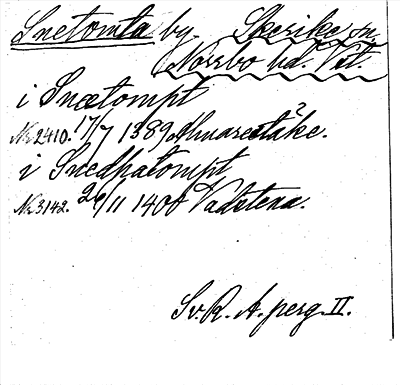 Snetomta by. Skerike sn.
Norrbo hd. Vstl.
i Snætompt
Nr 2410. 17/7 1389 Almarestäke.
i Snedhatompt
Nr 3142. 26/11 1400 Vadstena.
Sv. R. A. perg. II.